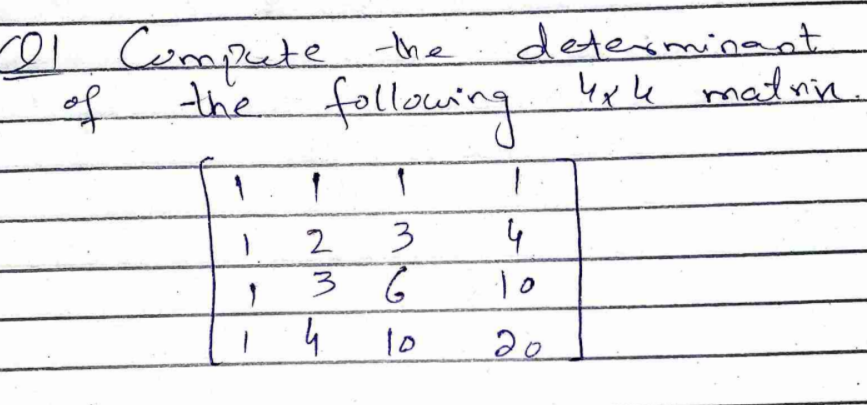 Q1 Compute the determinant
of the following 4x4 matrix.
1 1 1 1
1 2 3 4
1 3 6 10
1 4 10 20